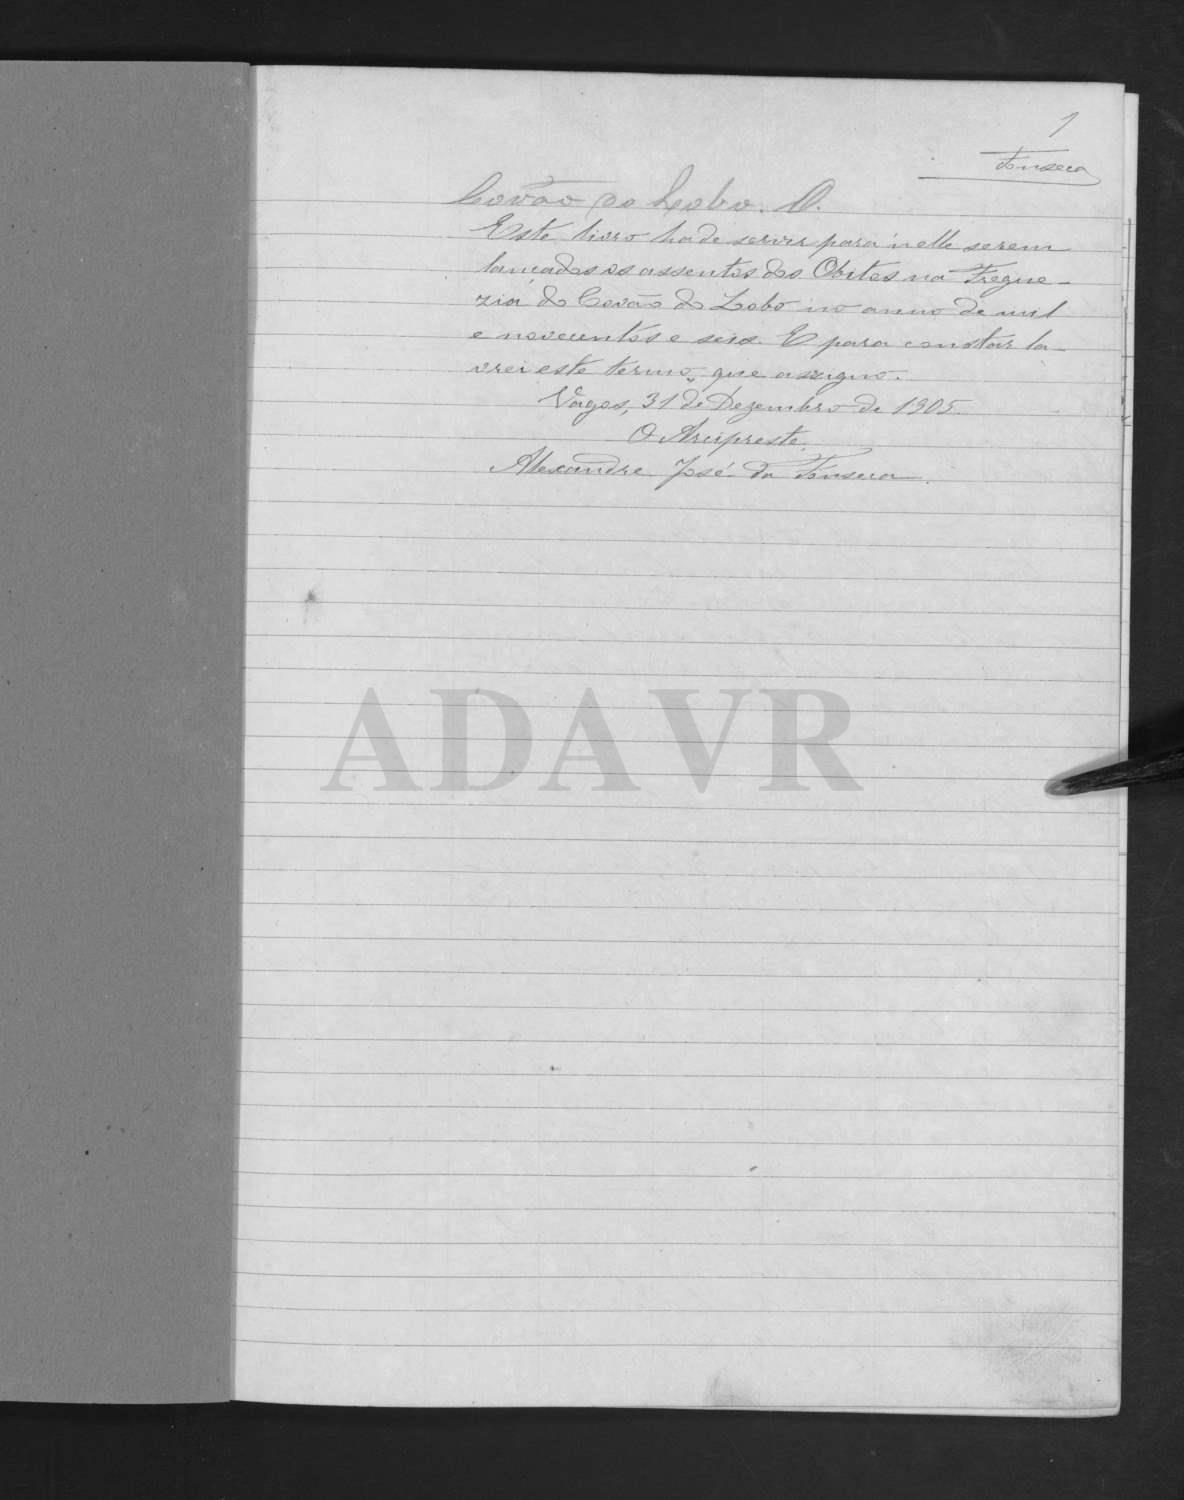 1
Fonseca
Covão do Lobo. O.
Este livro hade servir para n'elle serem
lançados os assentos dos Obitos na Fregue-
zia do Covão do Lobo no anno de mil
e novecentos e seis. E para constar la-
vrei este termo, que assigno.
Vagos, 31 de Dezembro de 1905.
O Arcipreste,
Alexandre José da Fonseca.
ADAVR